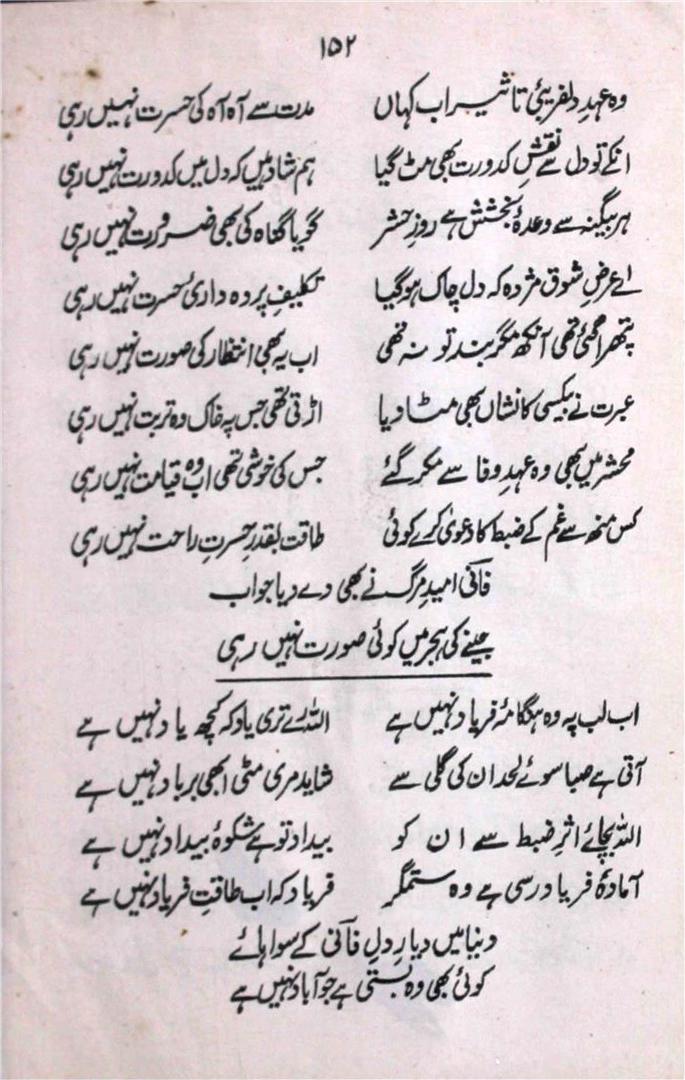 ۱۵۲
وہ عہدِ دلفریبیٔ تاثیر اب کہاں مدت سے آہ آہ کی حسرت نہیں رہی
انکے تو دل سے نقشِ کدورت بھی مٹ گیا ہم شاد ہیں کہ دل میں کدورت نہیں رہی
ہر بیگنہ سے وعدۂ بخشش ہے روزِ حشر گویا گناہ کی بھی ضرورت نہیں رہی
اے عرضِ شوق مژدہ کہ دل چاک ہو گیا تکلیفِ پردہ داریٔ حسرت نہیں رہی
پتھرا گئی تھی آنکھ مگر بند تو نہ تھی اب یہ بھی انتظار کی صورت نہیں رہی
عبرت نے بیکسی کا نشاں بھی مٹا دیا اڑتی تھی جس پہ خاک وہ تربت نہیں رہی
محشر میں بھی وہ عہدِ وفا سے مکر گئے جس کی خوشی تھی اب وہ قیامت نہیں رہی
کس منھ سے غم کے ضبط کا دعویٰ کرے کوئی طاقت بقدرِ حسرتِ راحت نہیں رہی
فانیؔ امیدِ مرگ نے بھی دے دیا جواب
جینے کی ہجر میں کوئی صورت نہیں رہی
اب لب پہ وہ ہنگامۂ فریاد نہیں ہے اللہ رے تری یاد کہ کچھ یاد نہیں ہے
آتی ہے صبا سوئے لحد ان کی گلی سے شاید مری مٹی ابھی برباد نہیں ہے
اللہ بچائے اثرِ ضبط سے ان کو بیداد تو ہے شکوۂ بیداد نہیں ہے
آمادۂ فریاد رسی ہے وہ ستمگر فریاد کہ اب طاقتِ فریاد نہیں ہے
دنیا میں دیارِ دلِ فانیؔ کے سوا ہائے
کوئی بھی وہ بستی ہے جو آباد نہیں ہے